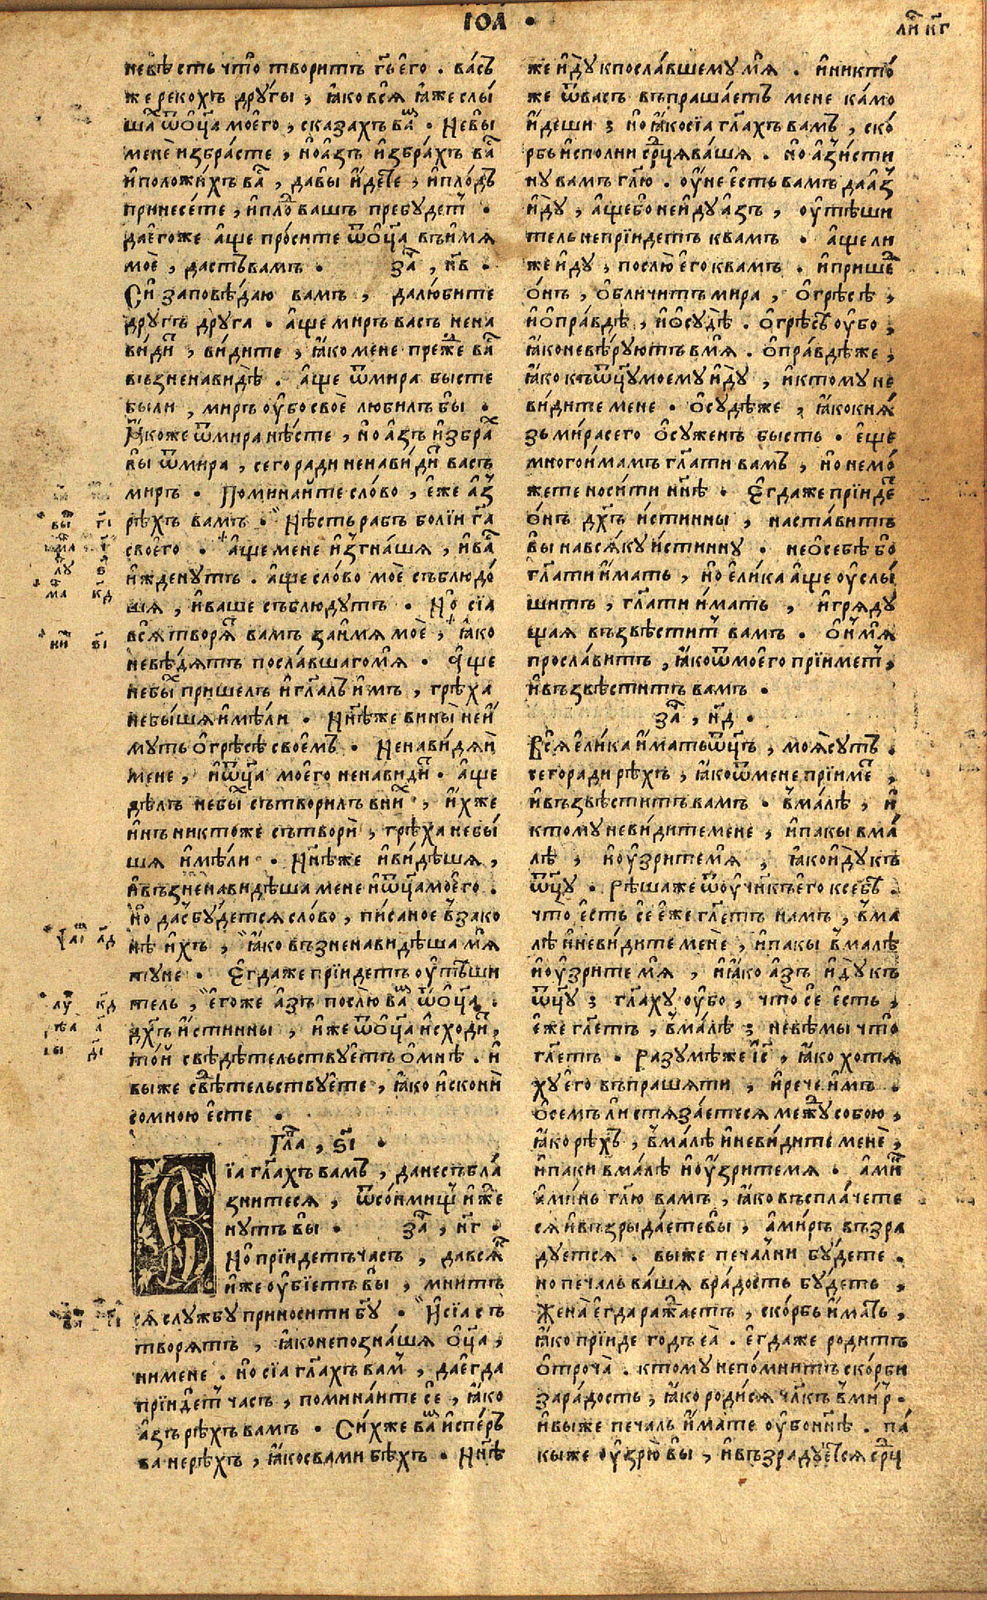 ІѠА́ •
ли̑ к҃г
невѣ́сть что̀ твори́тъ гь҃ его̀ . ва́съ
же реко́хъ дрꙋ́гы , ꙗ҆́ко всѧ̀ ꙗ҆́же слы́
шаⷯ ѿ ѻ҆ц҃а̀ моего̀ , сказа́хъ ваⷨ . Не вы̀
менѐ избра́сте , но а҆́зъ и҆збра́хъ ваⷭ
и҆ положи́хъ ваⷭ , да вы̀ и҆́детⷷе , и҆ пло́дъ
принесе́те , и҆ плоⷣ вашъ пребꙋ́детъ .
да его́же а҆́ще про́сите ѿ ѻ҆ц҃а̀ въ и҆́мѧ
моѐ , да́стъ вамъ . заⷱ҇ , н҃в .
Сїѧ̀ заповѣ́даю вамъ , да лю́бите
дрꙋ́гъ дрꙋга . а҆́ще миръ васъ нена
ви́диⷮ , ви́дите , ꙗ҆́ко мене преⷤже ваⷭ
възненави́дѣ . а҆́ще ѿ мира бысте
были , миръ ᲂу҆́бо своѐ люби́лъ бы̀ .
Ꙗ҆́коже ѿ мира нѣ́сте , но а҆́зъ и҆збраⷯ
вы̀ ѿ мира , сего ради ненави́диⷮ васъ
миръ . Помина́йте сло́во , е҆́же а҆́зъ
рѣ́хъ вамъ . Нѣ́сть рабъ бо́лїи гⷭ҇а
своего̀ . а҆́ще мене и҆згна́шѧ , и҆ ваⷭ
и҆жденꙋ́тъ . а҆́ще сло́во моѐ съблюдо́
шѧ , и҆ ваше съблюдꙋ́тъ . Но̀ сїѧ
всѧ̀ творѧⷮ вамъ за и҆́мѧ моѐ , ꙗ҆́ко
не вѣ́дѧтъ посла́вшаго мѧ̀ . а҆́ще
не быⷯ прише́лъ и҆ гл҃алъ и҆́мъ , грѣ́ха
не бы́шѧ и҆мѣ́ли . Нн҃ѣ же вины̀ не и҆́
мꙋтъ ѻ҆ грѣ́сѣ своемъ . Ненави́дѧй
мене , и҆ ѿц҃а̀ моего̀ ненави́диⷮ . а҆́ще
дѣ́лъ не быⷯ сътвори́лъ в ниⷯ , и҆́хже
и҆́нъ никто́же сътворѝ , грѣ́ха не бы́
шѧ и҆мѣ́ли . Нн҃ѣ же и҆ ви́дѣшѧ ,
и҆ възненави́дѣша мене и҆ ѿц҃а моего̀ .
Но да сбꙋ́детсѧ сло́во , пи́саное в̾ зако
нѣ и҆́хъ , ꙗ҆́ко възненави́дѣша мѧ̀
тꙋне . Е҆гда́же прїи́детъ ᲂу҆тѣ́ши
тель , е҆го́же а҆́зъ послю̀ ваⷨ ѿ ѻ҆ц҃а̀ .
дх҃ъ и҆́стинны , и҆́же ѿ ѻ҆ц҃а и҆схо́диⷮ ,
то́й свѣдѣтельствꙋ́етъ ѻ҆ мнѣ̀ . и҆
вы́же свѣⷣтельствꙋ́ете , ꙗ҆́ко и҆скони̑
со мно́ю е҆сте .
Гла҃ , ѕ҃ı .
Сїа гл҃ахъ вамъ , да не събла́
знитесѧ , ѿ со́ньмищь и҆жⷣе
нꙋтъ вы̀ . заⷱ҇ , н҃г .
Но̀ прїи́детъ часъ , да всѧⷦ
и҆́же ᲂу҆бїетъ вы̀ , мни́тъ
сѧ слꙋ́жбꙋ приноси́ти бг҃ꙋ . И҆ сїа съ
творѧ́тъ , ꙗ҆́ко не позна́шѧ ѻ҆ц҃а̀ ,
ни мене . Но сїа гл҃ахъ ваⷨ , да е҆гда
прїи́детъ часъ , помина́ите сѐ , ꙗ҆́ко
а҆́зъ рѣ́хъ вамъ . Си́хже ваⷨ и҆спе́рвъ
ва не рѣ́хъ , ꙗ҆́ко с вами бѣ́хъ . Нн҃ѣ
же и҆́дꙋ к посла́вшемꙋ мѧ̀ . и҆ никто́
же ѿ васъ въпраша́етъ мене ка́мо
и҆́деши ; но ꙗ҆́ко сїа гл҃ахъ вамъ , ско́
рбь и҆спо́лни срⷣца ва́шѧ . но а҆́зъ и҆́сти
нꙋ вамъ гл҃ю . ᲂу҆́не е҆сть вамъ да а҆́зъ
и҆́дꙋ , а҆́ще бо не и҆́дꙋ а҆́зъ , ᲂу҆тѣ́ши
тель не прїи́детъ к вамъ . а҆́ще ли
же и҆́дꙋ , послю̀ е҆го к вамъ . и҆ прише́дъ
ѻ҆́нъ , ѻ҆бличи́тъ мира , ѻ҆ грѣ́сѣ ,
и҆ ѻ҆ пра́вдѣ , и҆ ѻ҆ сꙋдѣ̀ . ѻ҆ грѣ́сѣ ᲂу҆́бо ,
ꙗ҆́ко не вѣ́рꙋютъ в мѧ̀ . ѻ҆ пра́вдѣ же ,
ꙗ҆́ко къ ѿц҃ꙋ моемꙋ и҆́дꙋ , и҆ ктомꙋ не
ви́дите мене . ѻ҆ сꙋдѣ́же , ꙗ҆́ко кнѧ́
зь ми́ра сего ѻ҆сꙋженъ бысть . е҆ще
много и҆́мамъ гл҃ати вамъ , но не мо́
жете носи́ти нн҃ѣ . Е҆гда́же прїи́деⷮ
ѻ҆́нъ дх҃ъ и҆́стинны , наста́витъ
вы на всѧ́кꙋ и҆́стиннꙋ . не ѻ҆ себѣ бо
гл҃ати и҆́мать , но е҆ли́ка а҆́ще ᲂу҆слы́
шитъ , гл҃ати и҆́мать , и҆ грѧдꙋ́
щаѧ възвѣсти́тъ вамъ . ѻ҆́н̾ мѧ̀
просла́витъ , ꙗ҆́ко ѿ моего прїи́метъ ,
и҆ възвѣсти́тъ вамъ .
заⷱ҇ , н҃д .
Всѧ̀ е҆ли́ка и҆́мать ѿц҃ъ , моѧ̀ сꙋть .
сего ради рѣ́хъ , ꙗ҆́ко ѿ мене прїи́меⷮ ,
и҆ възвѣсти́тъ вамъ . в̾ ма́лѣ , и҆
ктомꙋ не ви́дите мене , и҆ пакы в ма́
лѣ , и҆ ᲂу҆́зрите мѧ̀ , ꙗ҆́ко и҆́дꙋ къ
ѿц҃ꙋ . Рѣ́ша же ѿ ᲂу҆чн҃къ е҆го к себѣ̀ .
что̀ е҆сть се е҆́же гл҃етъ намъ , в̾ ма
лѣ и҆ не ви́дите менѐ , и҆ пакы в̾ малѣ
и҆ ᲂу҆́зрите мѧ̀ , и҆ ꙗ҆́ко а҆́зъ и҆́дꙋ къ
ѿц҃ꙋ ; гл҃ахꙋ ᲂу҆́бо , что̀ се е҆сть ,
е҆́же гл҃етъ , в̾ ма́лѣ ; не вѣ́мы что̀
гл҃етъ . Разꙋмѣ́же і҆с҃ , ꙗ҆́ко хотѧ
хꙋ е҆го въпраша́ти , и҆ рече и҆́мъ .
ѻ҆ семъ ли стѧза́етесѧ межⷣꙋ собою ,
ꙗ҆́ко рѣ́хъ , в̾ ма́лѣ и҆ не ви́дите менѐ ,
и҆ паки в ма́лѣ и҆ ᲂу҆́зрите мѧ . а҆ми́нь
а҆ми́нь гл҃ю вамъ , ꙗ҆́ко въспла́чете
сѧ и҆ възрыда́ете вы̀ , а҆ миръ възра
дꙋетсѧ . вы́же печа́лни бꙋ́дете .
но печаль ва́шѧ в ра́дость бꙋ́детъ ,
Жена̀ е҆гда ража́етъ , ско́рбь и҆́мать ,
ꙗ҆́ко прїи́де годъ еѧ̀ . е҆гда́же роди́тъ
ѻ҆троча̀ . ктомꙋ не по́мнитъ ско́рби
за ра́дость , ꙗ҆́ко роди́сѧ чл҃къ в̾ ми́р .
и҆ вы́же печаль и҆́мате ᲂу҆бо нн҃ѣ . па́
кы же ᲂу҆зрю̀ вы , и҆ възрадꙋ́етсѧ срⷣце